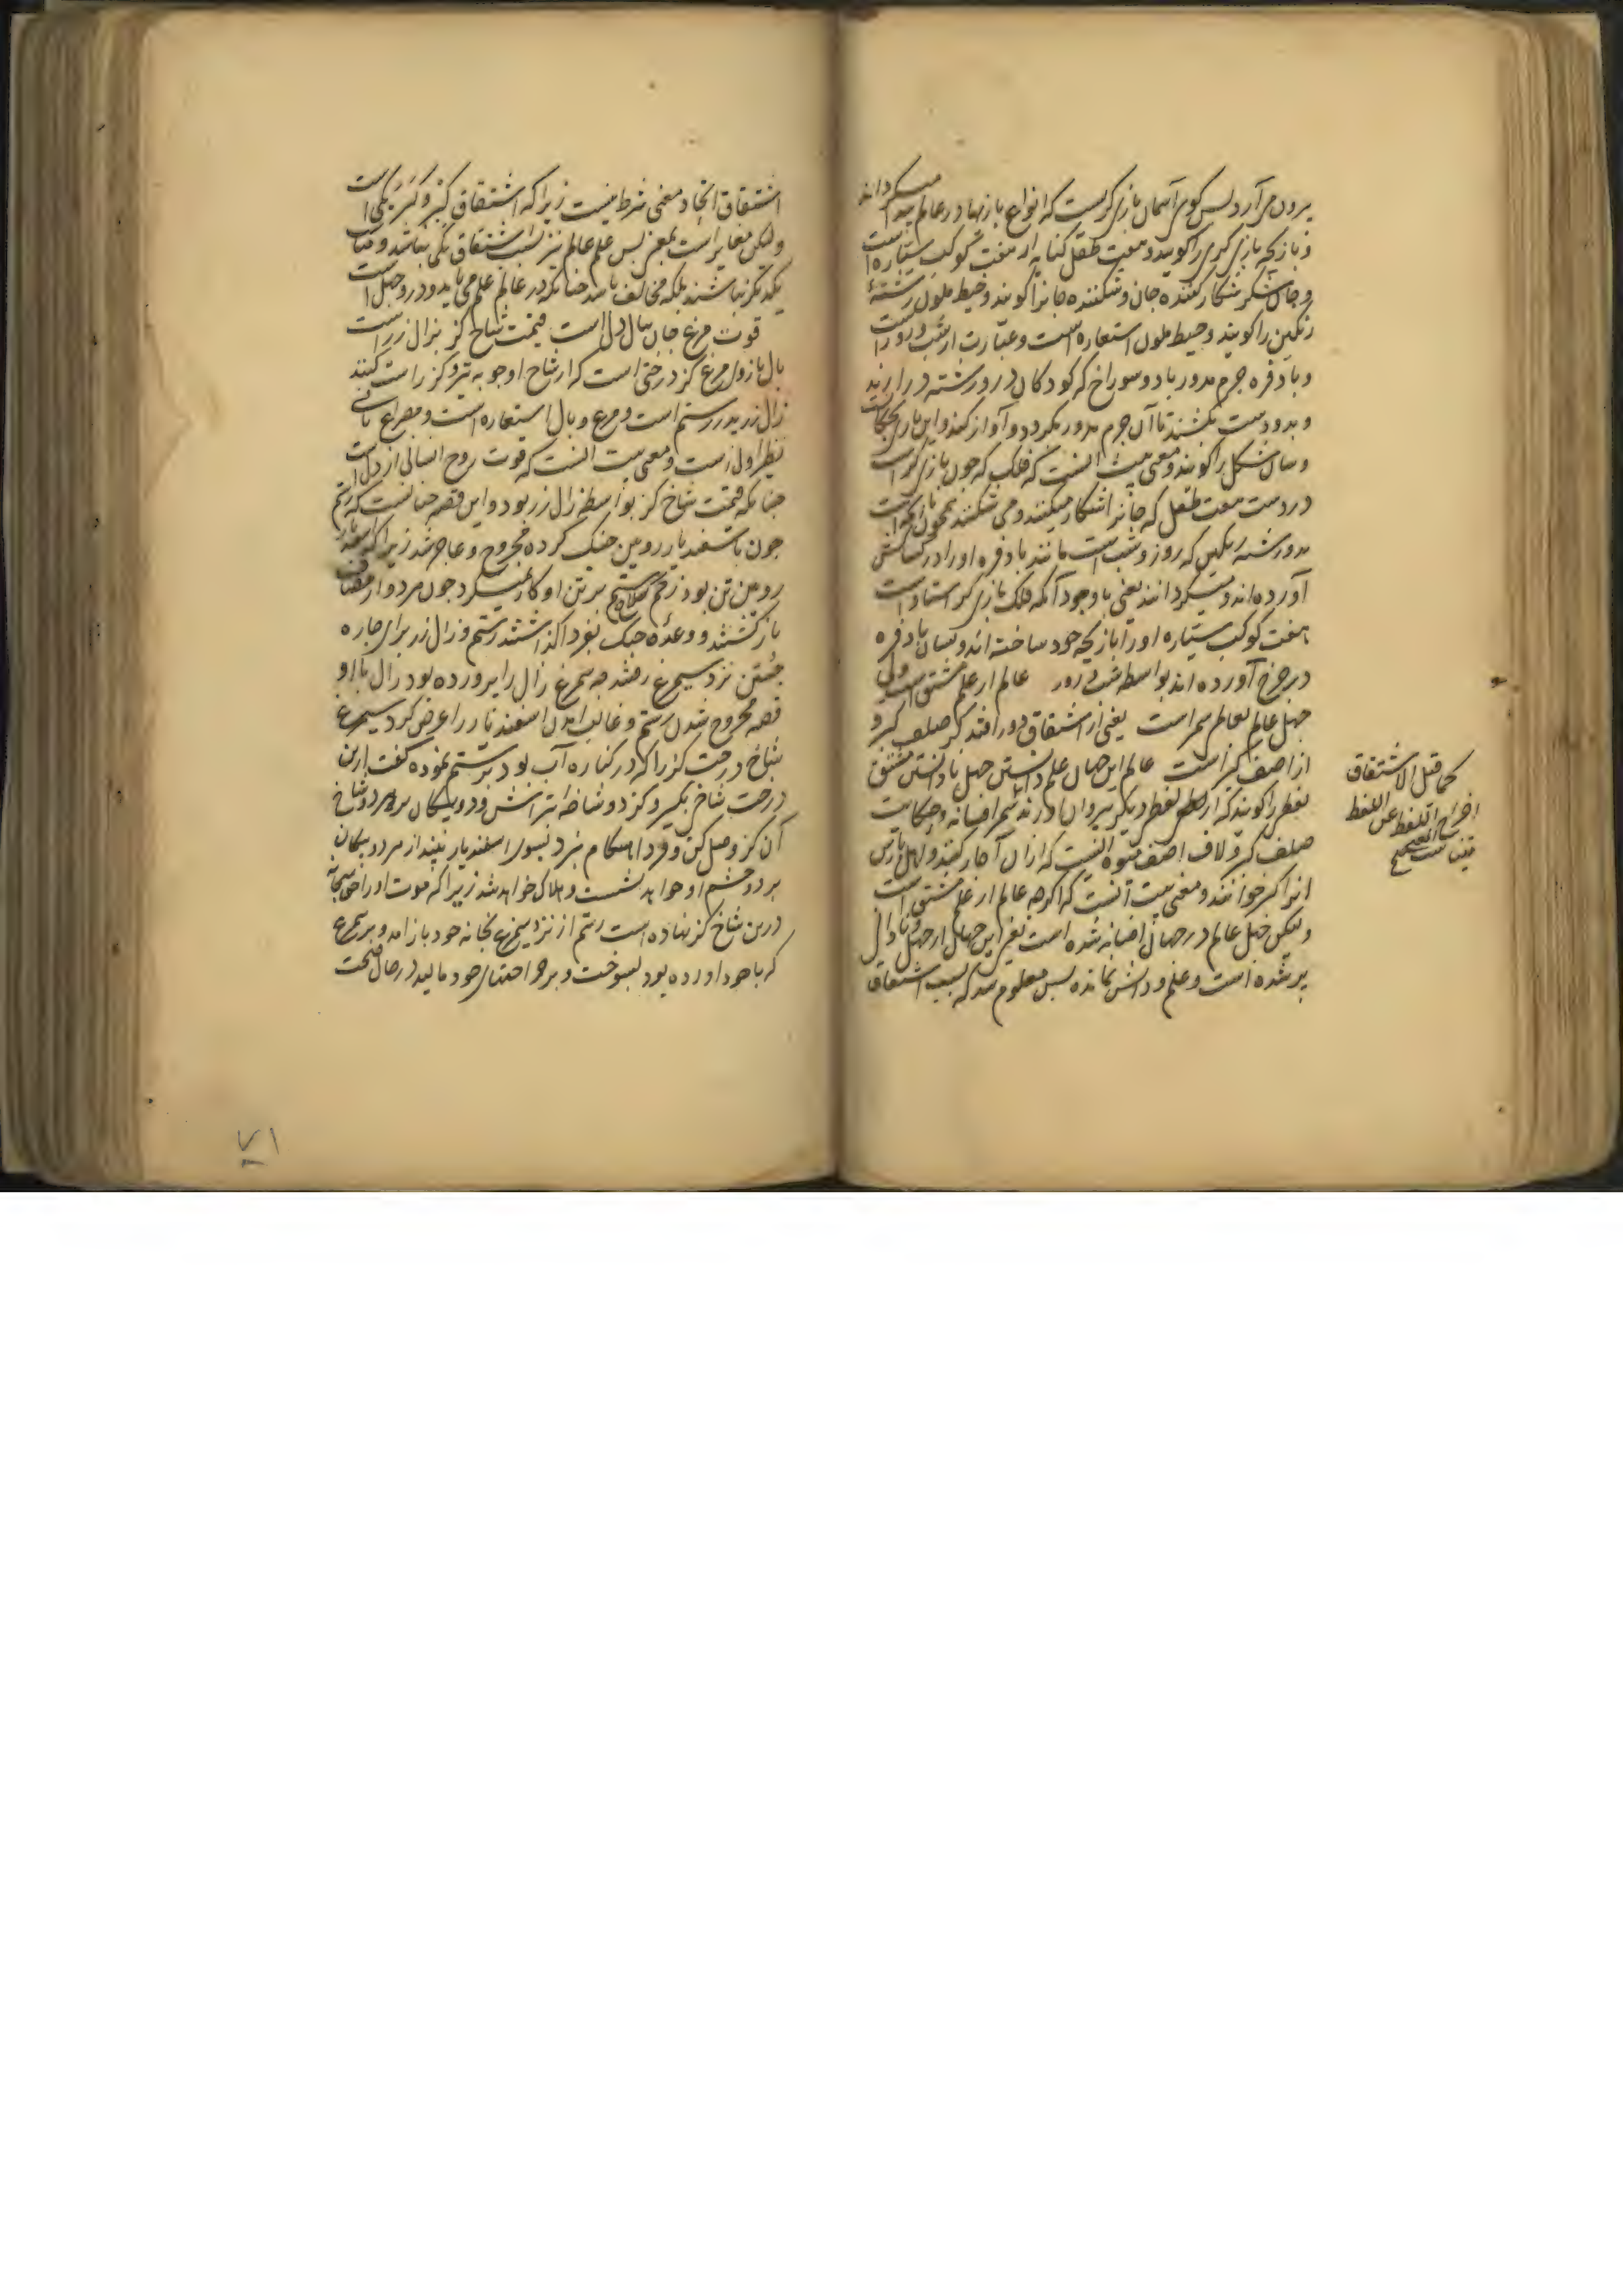 برون می آرد پس کوی آسمان بازی کریست که انواع بازیها در عالم پیدا میکرداند
و بازیچه بازی کری را کویند و هفت طفل کنایه از هفت کوکب سیاره است
و جان شکر شکار کننده جان و شکننده جانرا کویند و خیط ملون رشتهٔ
رنکین را کویند و خیط ملون استعاره است و عبارت از شب و روز است
و بادفره جرم مدور با دو سوراخ که کودکان در و رشته در آرند
و بدو دست بکشند تا آن جرم مدور بکردد و آواز کند و این بازی
و سان شکل را کویند و معنی بیت آنست که فلک که چون بازی کر است
در دست هفت طفل که جانرا شکار میکنند و می شکنند همچون بازیچه است
بدو رشته رنکین که روز و شب است مانند بادفره او را در کشاکش
آورده اند و میکردانند یعنی با وجود آنکه فلک بازی کر استاد است
هفت کوکب سیاره او را بازیچه خود ساخته اند و بسان بادفره
در چرخ آورده اند بواسطه شب و روز عالم از علم مشتق است ولی
جهل عالم بعالم سمر است یعنی از اشتقاق دور افتد کز صلف کبر و
از اصف کبر است عالم این جهان علم دانستن جهل نادانستن مشتق
لفظی را کویند که از لفظ دیکر بیرون آورند سمر افسانه و حکایت
صلف کبر و لاف اصف میوه ایست که از آن آچار کنند و اهل پارس
آنرا کبر خوانند و معنی بیت آنست که اکرچه عالم از علم مشتق است
و لیکن جهل عالم در جهان افسانه شده است یعنی این جهان از جهل و نادانی
پر شده است و علم و دانش نمانده پس معلوم شد که بسبب اشتقاق
کما قیل الاشتقاق
اخراج اللفظ عن اللفظ
اشتقاق اتحاد معنی شرط نیست زیرا که اشتقاق کبر و کبر یکی است
ولکن مغایر است بمعنی پس علم و عالم نیز بسبب اشتقاق یکی نباشد و مناسب
یکدیکر نباشند بلکه مخالف باشد چنانکه در عالم علم می باید و درو جهل است
قوت مرغ جان ببال دل است قیمت شاخ کز بزال زر است
بال بازوی مرغ کز درختی است که از شاخ او چوبه تیر و کز راست کنند
زال زر پدر رستم است و مرغ و بال استعاره است و مصراع ثانی
نظیر اول است و معنی بیت آنست که قوت روح انسانی از دل است
چنانکه قیمت شاخ کز بواسطه زال زر بود و این قصه چنانست که رستم
چون با اسفندیار رویین جنک کرده مجروح و عاجز شد زیرا که اسفندیار
رویین تن بود زخم سلاح رستم بر تن او کار نمیکرد چون هر دو از مصاف
باز کشتند و وعده جنک بفردا کذاشتند رستم و زال زر برای چاره
جستن نزد سیمرغ رفتند چه سیمرغ زال را پرورده بود زال با او
قصه مجروح شدن رستم و غالب آمدن اسفندیار را عرض کرد سیمرغ
شاخ درخت کز را که در کناره آب بود برستم نموده کفت ازین
درخت شاخی بکیر و کز دو شاخه بتراش و دو پیکان بر هر دو شاخ
آن کز وصل کن و فردا هنکام نبرد بسوی اسفندیار بینداز هر دو پیکان
بر دو چشم او خواهد نشست و هلاک خواهد شد زیرا که موت او را حق سبحانه
درین شاخ کز نهاده است رستم از نزد سیمرغ بخانه خود باز آمد و پر سیمرغ
که با خود آورده بود بسوخت و بر جراحتهای خود مالید در حال صحت
۷۱